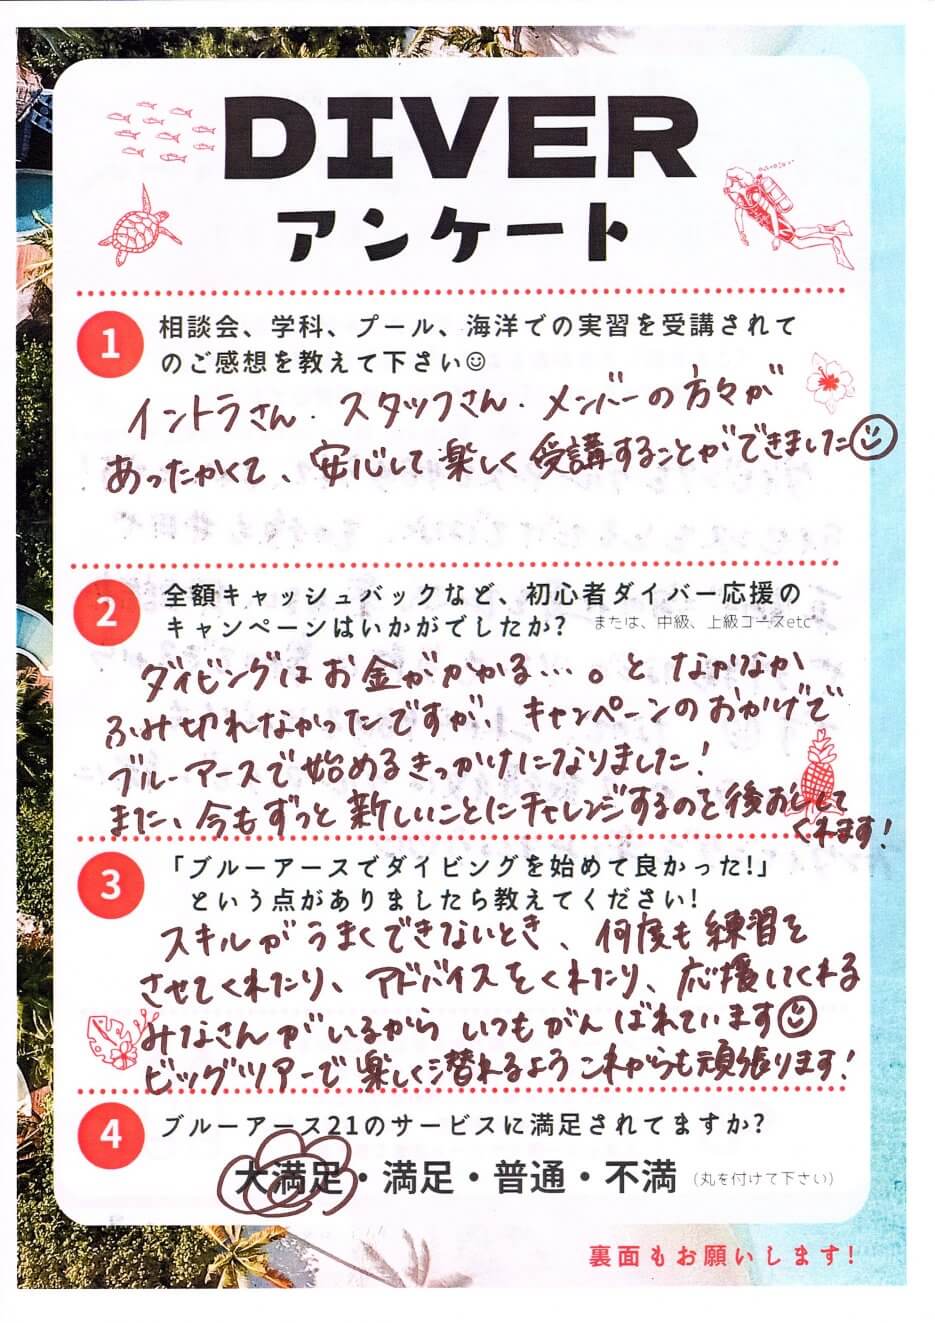 DIVER
アンケート
1
相談会、学科、プール、海洋での実習を受講されて
のご感想を教えて下さい☺
イントラさん・スタッフさん・メンバーの方々が
あったかくて、安心して楽しく受講することができました☺
2
全額キャッシュバックなど、初心者ダイバー応援の
キャンペーンはいかがでしたか? または、中級、上級コースetc
ダイビングはお金がかかる…。となかなか
ふみ切れなかったですが、キャンペーンのおかげで
ブルーアースで始めるきっかけになりました!
また、今もずっと新しいことにチャレンジするのを後おしして
くれます!
3
「ブルーアースでダイビングを始めて良かった!」
という点がありましたら教えてください!
スキルがうまくできないとき、何度も練習を
させてくれたり、アドバイスをくれたり、応援してくれる
みなさんがいるから いつもがんばれています☺
ビッグツアーで楽しく潜れるようこれからも頑張ります!
4
ブルーアース21のサービスに満足されてますか?
大満足・満足・普通・不満 (丸を付けて下さい)
裏面もお願いします!